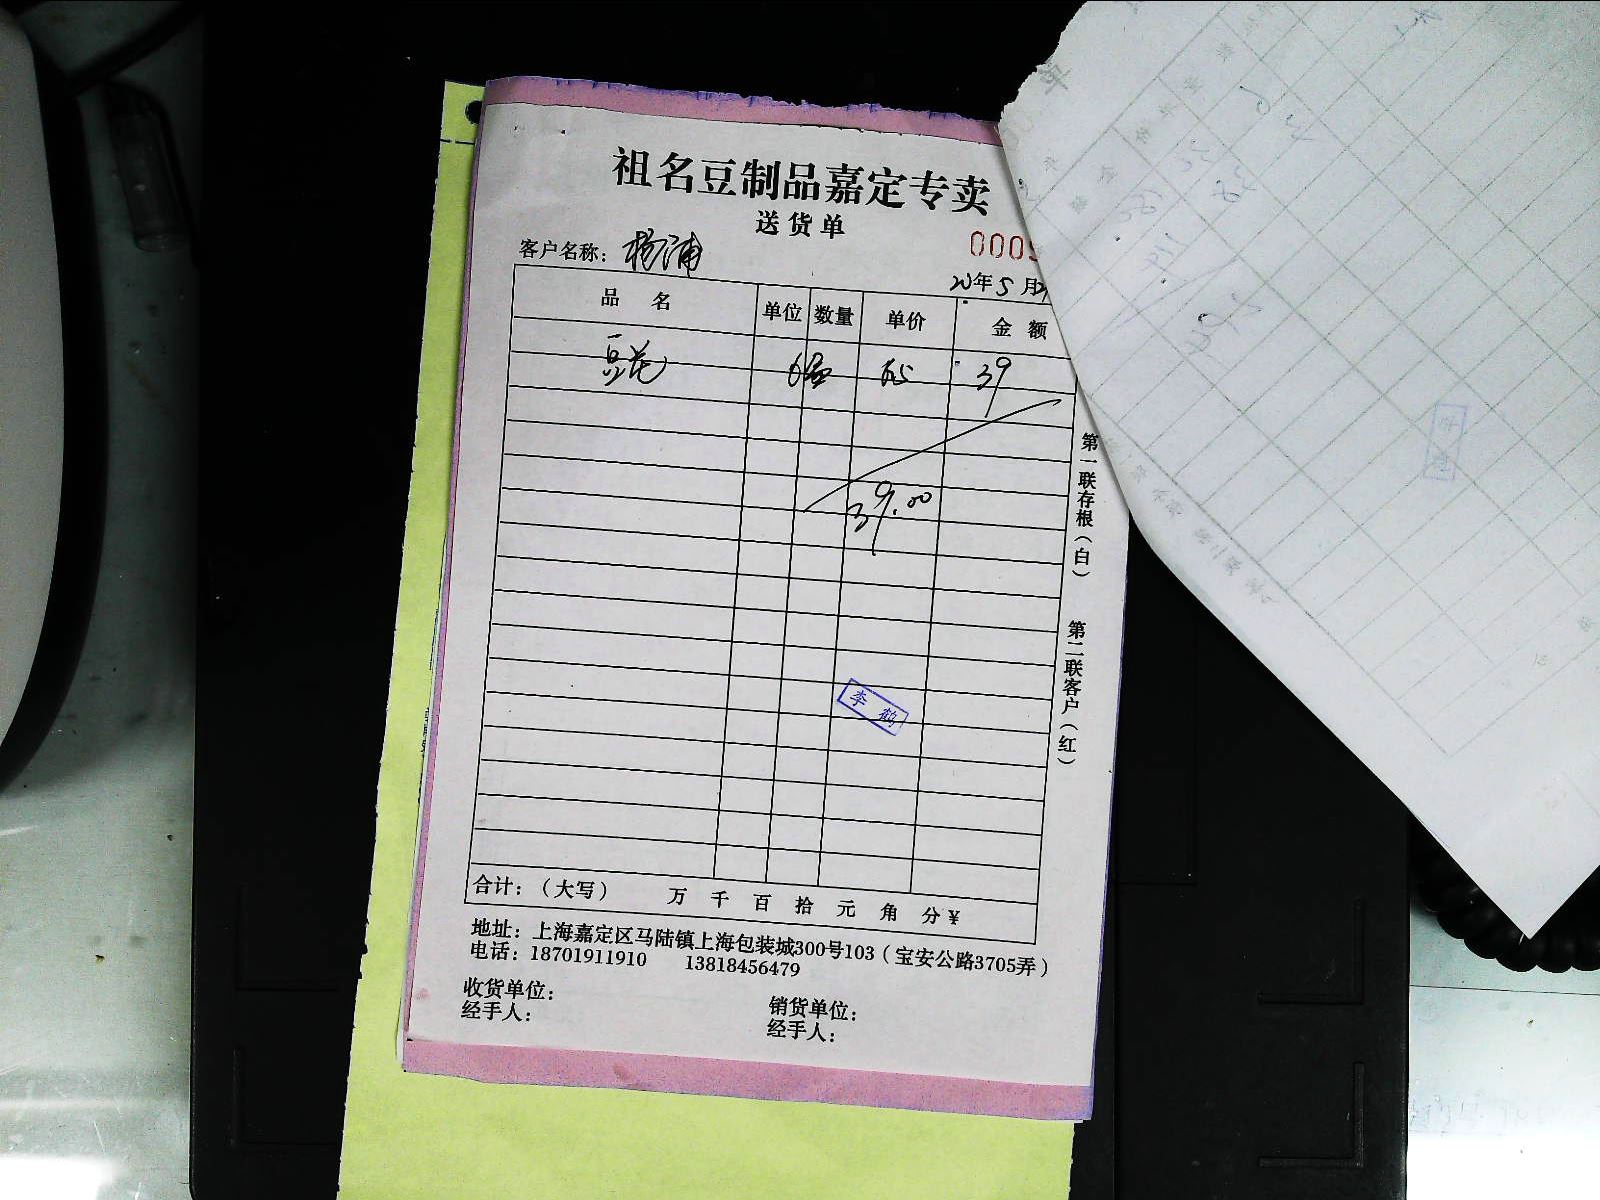 祖名豆制品嘉定专卖
送货单
000
客户名称：杨浦
20年5月
品 名 单位 数量 单价 金 额
豆花 6盒 6.5 39
39.00
李鹤
第一联存根（白） 第二联客户（红）
合计：（大写） 万 千 百 拾 元 角 分¥
地址：上海嘉定区马陆镇上海包装城300号103（宝安公路3705弄）
电话：18701911910 13818456479
收货单位： 销货单位：
经手人： 经手人：